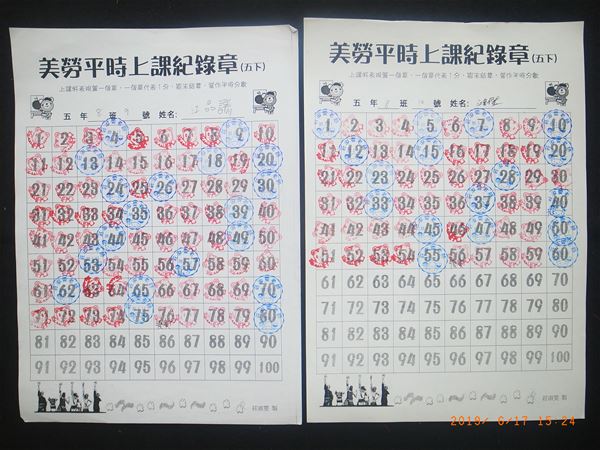 美勞平時上課紀錄章(五下)
五 年 8 班 9 號 姓名:
1 2 3 4 5 6 7 8 9 10
11 12 13 14 15 16 17 18 19 20
21 22 23 24 25 26 27 28 29 30
31 32 33 34 35 36 37 38 39 40
41 42 43 44 45 46 47 48 49 50
51 52 53 54 55 56 57 58 59 60
61 62 63 64 65 66 67 68 69 70
71 72 73 74 75 76 77 78 79 80
81 82 83 84 85 86 87 88 89 90
91 92 93 94 95 96 97 98 99 100
莊淑雯 製
美勞平時上課紀錄章(五下)
五 年 班 號 姓名:
1 2 3 4 5 6 7 8 9 10
11 12 13 14 15 16 17 18 19 20
21 22 23 24 25 26 27 28 29 30
31 32 33 34 35 36 37 38 39 40
41 42 43 44 45 46 47 48 49 50
51 52 53 54 55 56 57 58 59 60
61 62 63 64 65 66 67 68 69 70
71 72 73 74 75 76 77 78 79 80
81 82 83 84 85 86 87 88 89 90
91 92 93 94 95 96 97 98 99 100
莊淑雯 製
2019/ 6/17 15:24